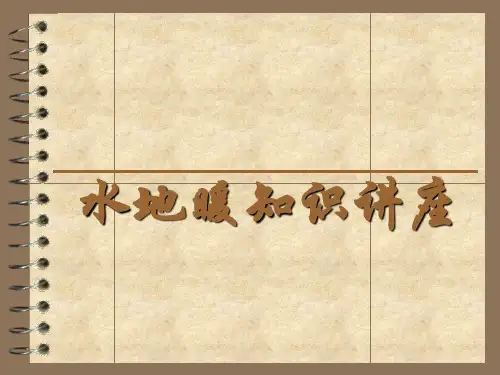 水地暖知识讲座